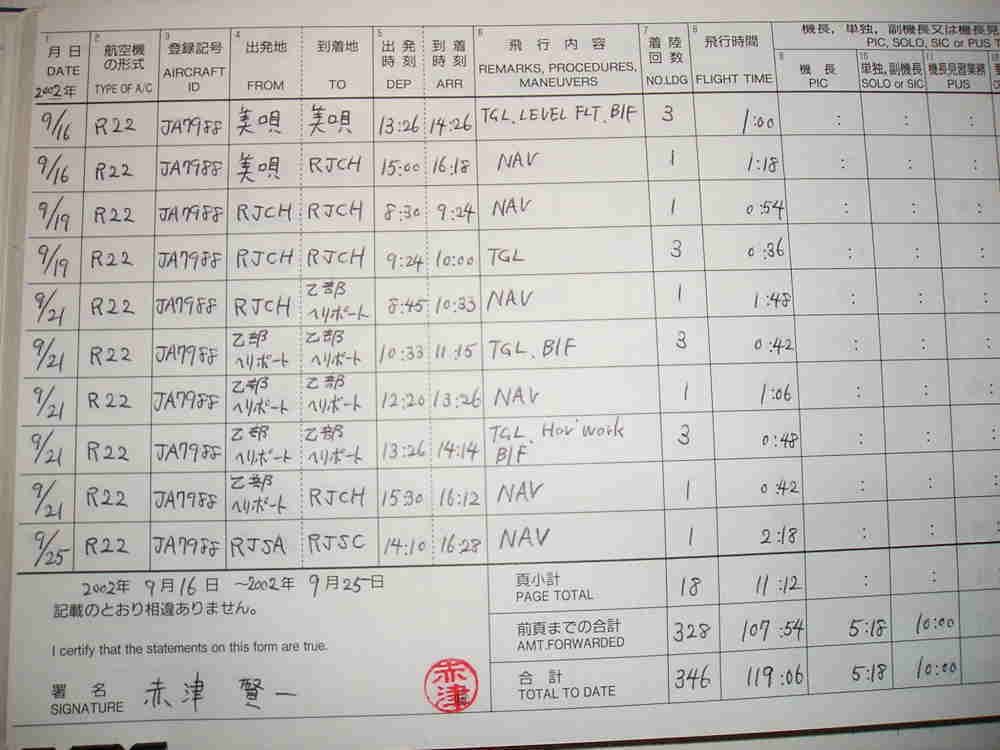 1 2 3 4 5 6 7 8
月 日 航空機の形式 登録記号 出発地 到着地 出発時刻 到着時刻 飛 行 内 容 着陸回数 飛行時間 機長，単独，副機長又は機長見
DATE TYPE OF A/C AIRCRAFT ID FROM TO DEP ARR REMARKS, PROCEDURES, MANEUVERS NO.LDG FLIGHT TIME PIC, SOLO, SIC or PUS T
2002年 機 長 単独，副機長 機長見習業務
PIC SOLO or SIC PUS
9/16 R22 JA7988 美唄 美唄 13:26 14:26 TGL、LEVEL FLT、B/F 3 1:00 : : :
9/16 R22 JA7988 美唄 RJCH 15:00 16:18 NAV 1 1:18 : : :
9/19 R22 JA7988 RJCH RJCH 8:30 9:24 NAV 1 0:54 : : :
9/19 R22 JA7988 RJCH RJCH 9:24 10:00 TGL 3 0:36 : : :
9/21 R22 JA7988 RJCH 乙部ヘリポート 8:45 10:33 NAV 1 1:48 : : :
9/21 R22 JA7988 乙部ヘリポート 乙部ヘリポート 10:33 11:15 TGL、B/F 3 0:42 : : :
9/21 R22 JA7988 乙部ヘリポート 乙部ヘリポート 12:20 13:26 NAV 1 1:06 : : :
9/21 R22 JA7988 乙部ヘリポート 乙部ヘリポート 13:26 14:14 TGL、Hov' work B/F 3 0:48 : : :
9/21 R22 JA7988 乙部ヘリポート RJCH 15:30 16:12 NAV 1 0:42 : : :
9/25 R22 JA7988 RJSA RJSC 14:10 16:28 NAV 1 2:18 : : :
2002年 9月16日 〜2002年 9月25日
記載のとおり相違ありません。
I certify that the statements on this form are true.
署 名
SIGNATURE 赤津 賢一
赤津
頁小計
PAGE TOTAL 18 11:12 : :
前頁までの合計
AMT.FORWARDED 328 107:54 5:18 10:00
合 計
TOTAL TO DATE 346 119:06 5:18 10:00